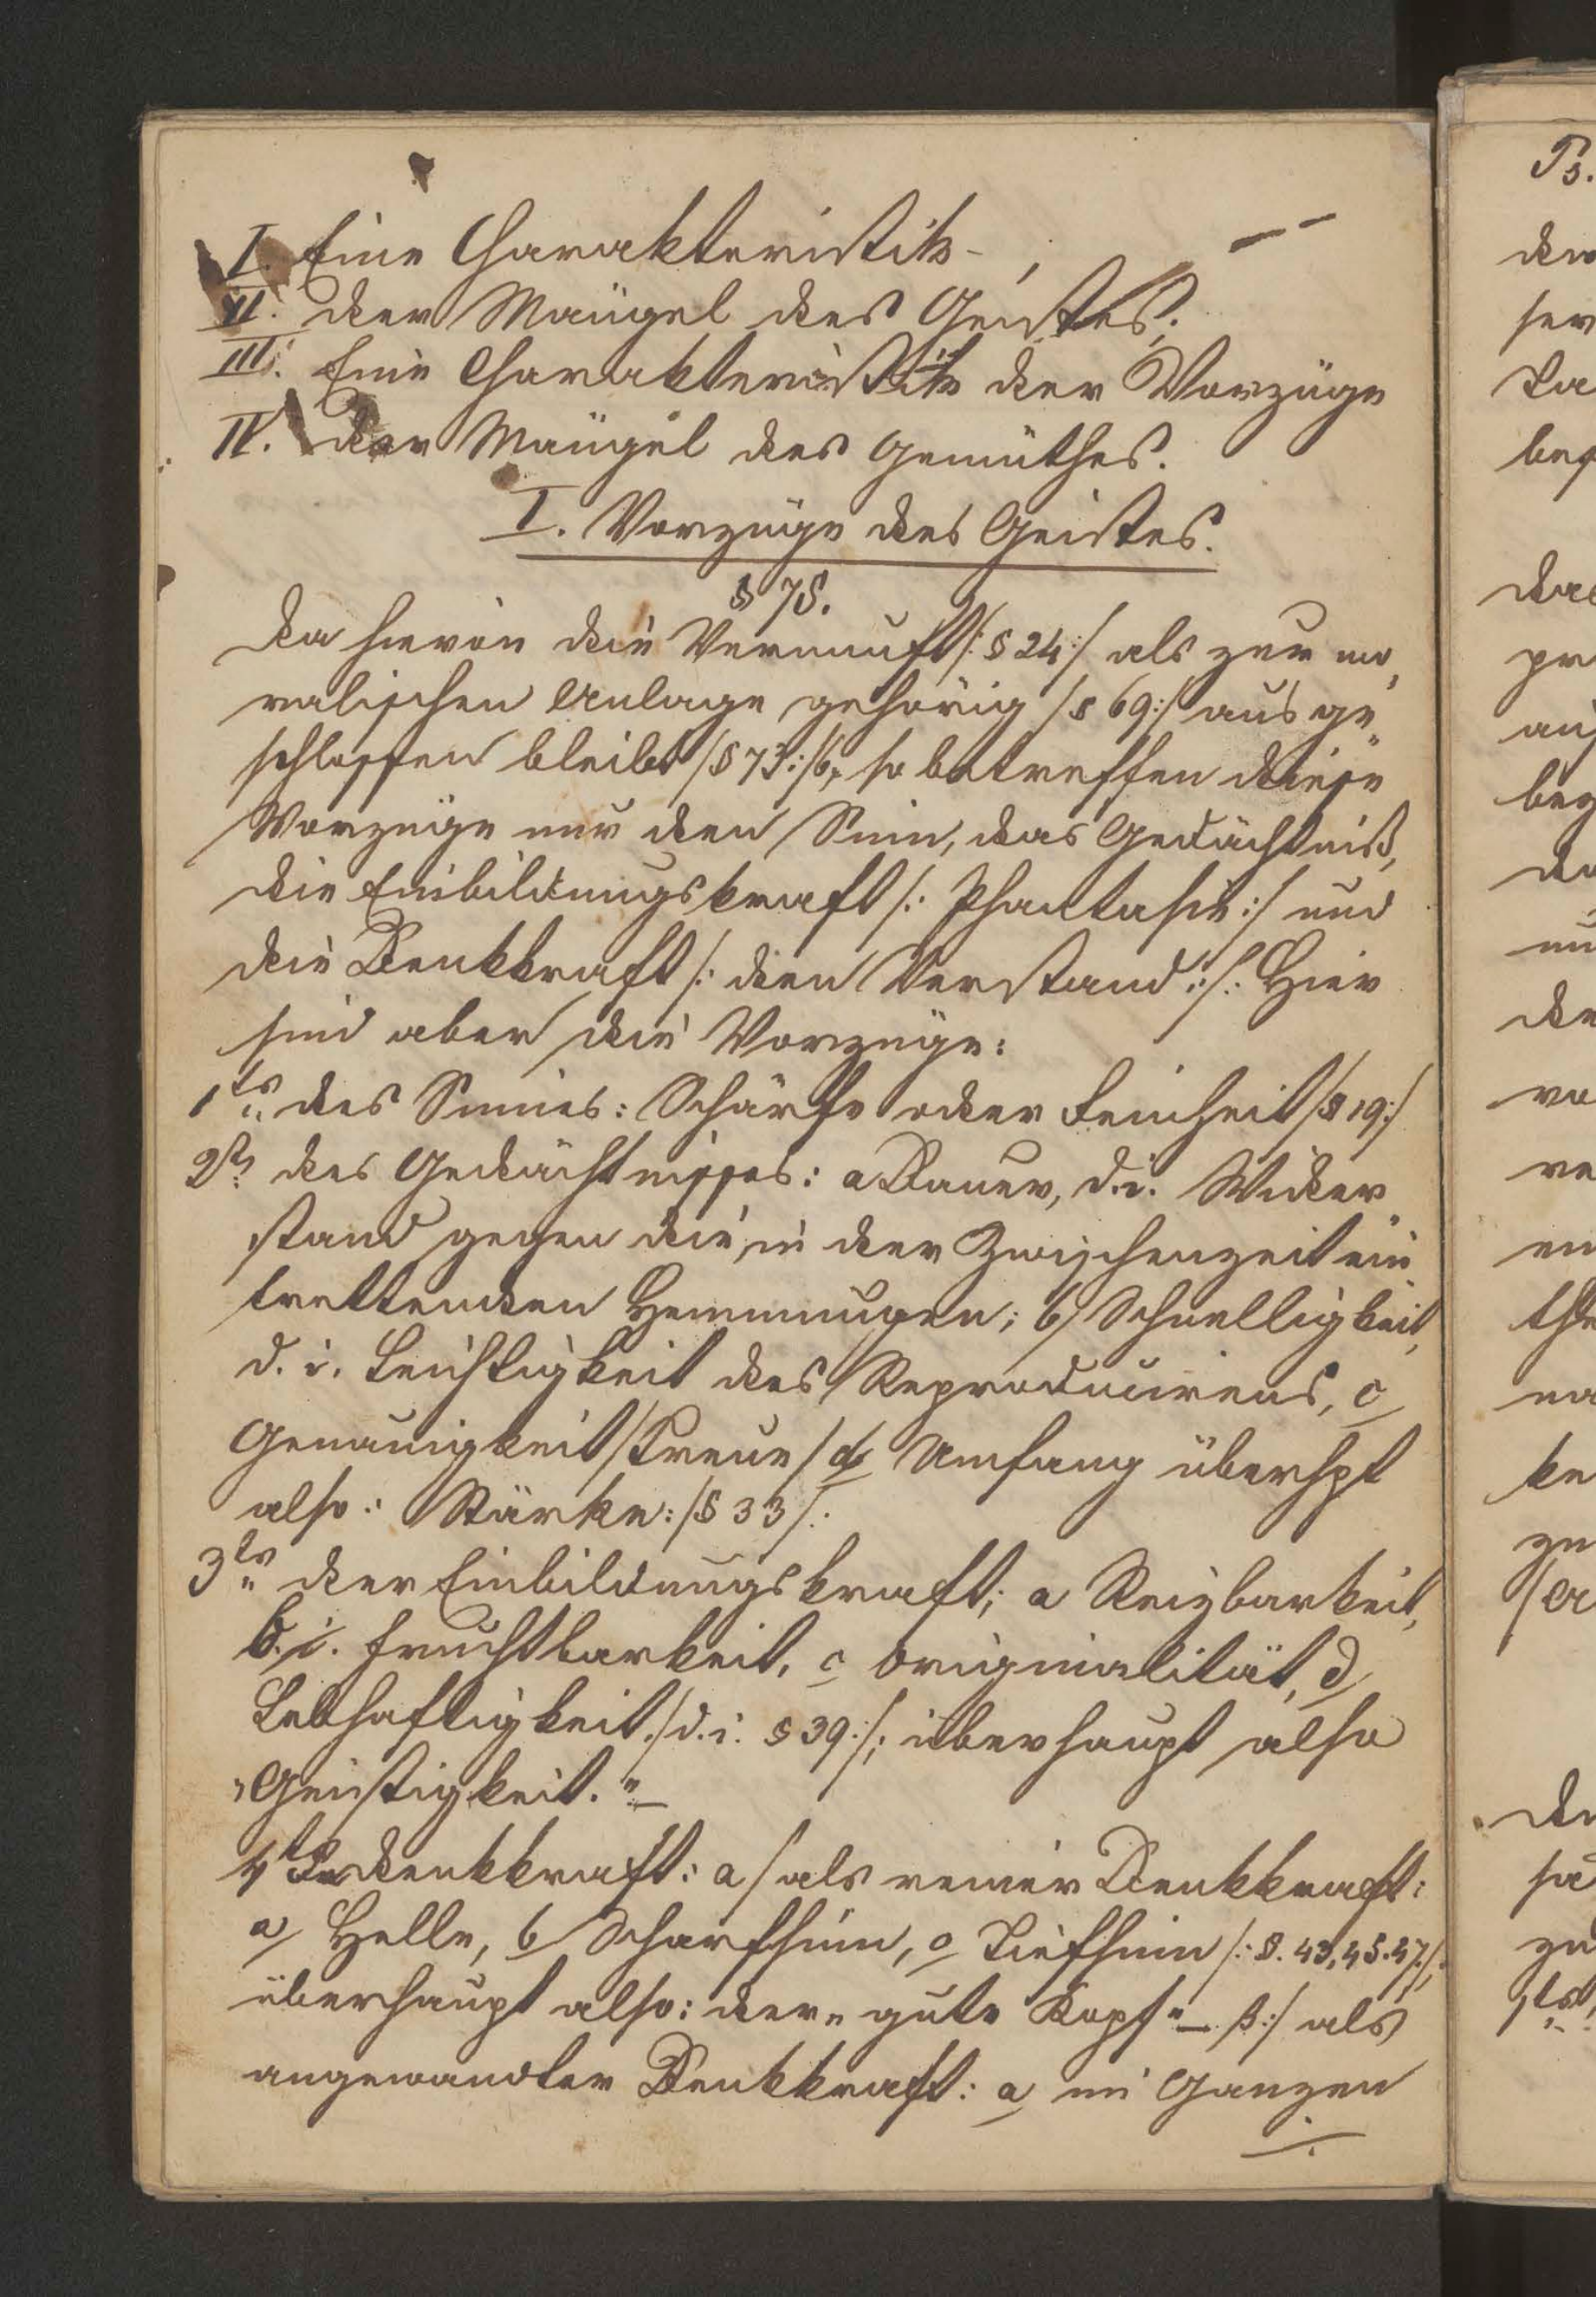 I. Eine Charakteristik - , — —
II. der Mängel des Geistes;
III. Eine Charakteristik der Vorzüge
IV. der Mängel des Gemüthes.
I. Vorzüge des Geistes.
§ 75.
Da hievon die Vernunft /: § 24 :/ als zur mo„
ralischen Anlage gehörig /§ 69:/ ausge„
schlossen bleibt /§ 73:/ b, so betreffen diese
Vorzüge nur den Sinn, das Gedächtniß,
die Einbildungskraft /: Phantasie :/ und
die Denkkraft /: den Verstand :/: Hier
sind aber die Vorzüge:
1tens des Sinnes: Schärfe oder Feinheit /§ 19:/
2tens des Gedächtnisses: a Dauer, d.i. Wider„
stand gegen die, in der Zwischenzeit ein„
trettenden Hemmungen; b/ Schnelligkeit,
d. i. Leichtigkeit des Reproducirens, c/
Genauigkeit /Treue/ d/ Umfang überhpt
also: Stärke: /§ 33/:
3tens der Einbildungskraft; a Reizbarkeit,
b. i. Fruchtbarkeit, c Originalität, d/
Lebhaftigkeit /d. i. § 39:/; überhaupt also
„Geistigkeit." —
4tens Denkkraft: a/ als reiner Denkkraft:
a/ Helle, b/ Scharfsinn, c/ Tiefsinn /: §. 43, 45. 47:/,
überhaupt also: der „gute Kopf" — β:/ als
angewandter Denkkraft: a/ im Ganzen